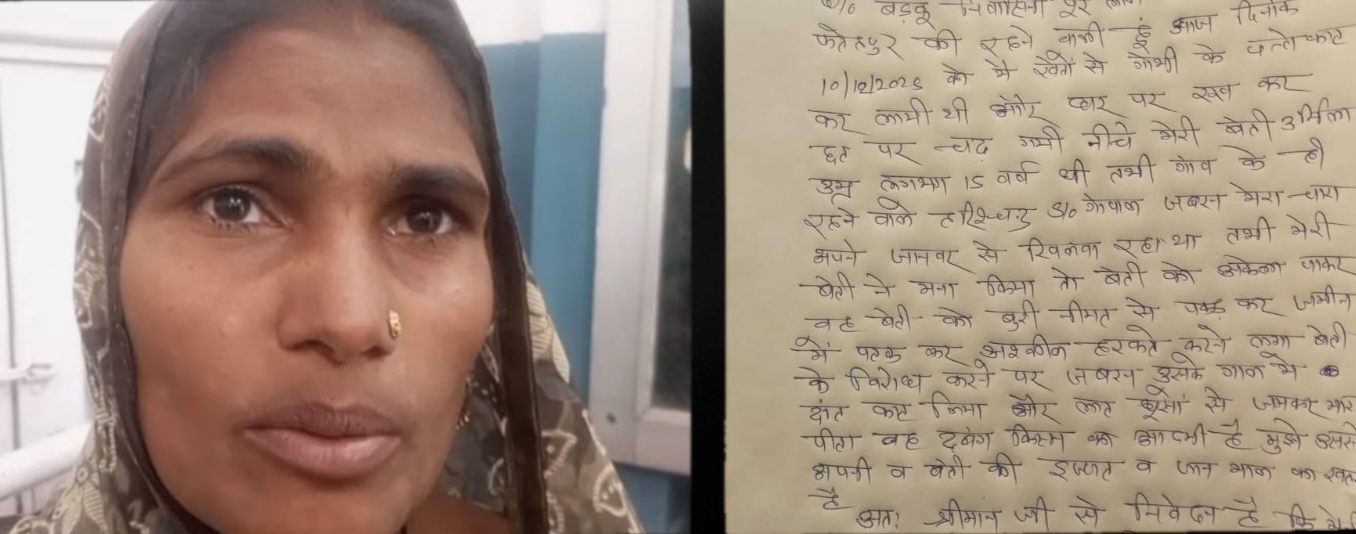 बड़कू निवासिनी पूरे
फतेहपुर की रहने वाली हूं आज दिनांक
10/12/2025 को मैं खेतों से गोभी के पत्ते काट
कर लायी थी और द्वार पर रख कर
छत पर चढ़ गयी नीचे मेरी बेटी उर्मिला
उम्र लगभग 15 वर्ष थी तभी गांव के ही
रहने वाले हरिश्चन्द्र S/o गोपाल जबरन मेरा चारा
अपने जानवर से खिलवा रहा था तभी मेरी
बेटी ने मना किया तो बेटी को अकेला पाकर
वह बेटी को बुरी नीयत से पकड़ कर जमीन
में पटक कर अश्लील हरकते करने लगा बेटी
के विरोध करने पर जबरन उसके गाल में
दांत काट लिया और लात घूसों से जमकर मारा
पीटा वह दबंग किस्म का आदमी है मुझे उससे
अपनी व बेटी की इज्जत व जान माल का खतरा
है
अतः श्रीमान जी से निवेदन है कि